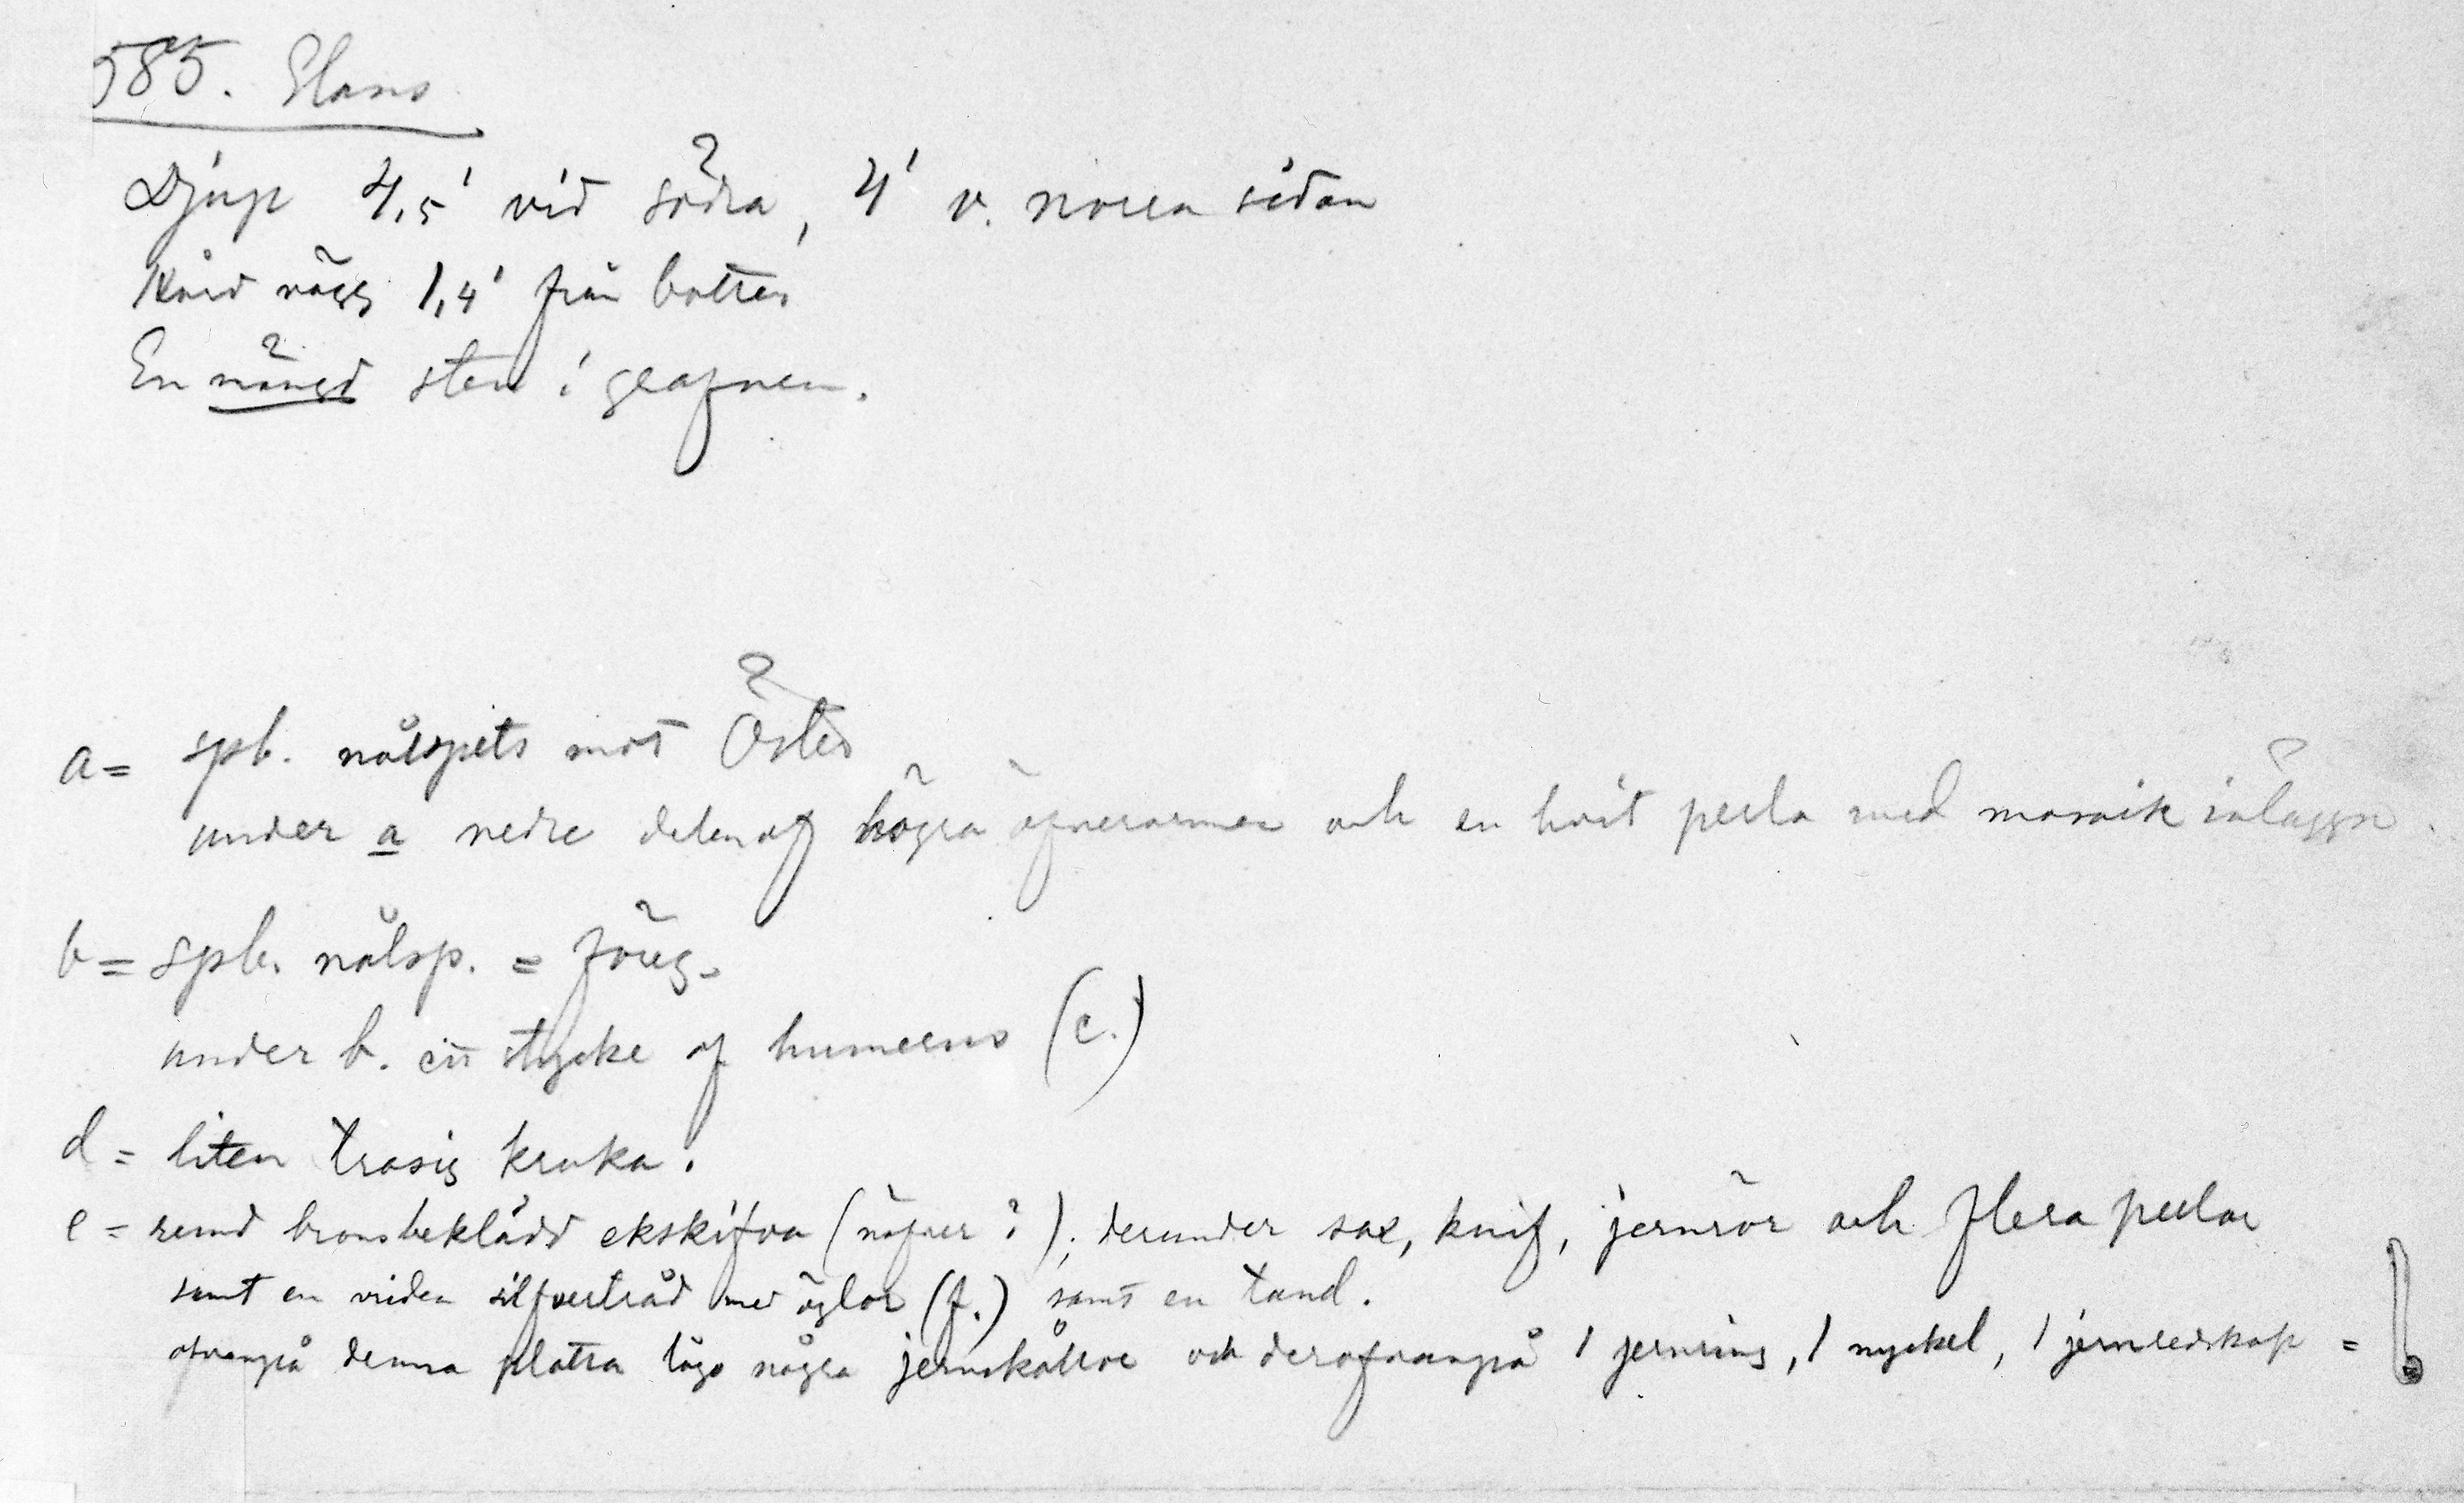 585. Hans
Djup 4,5' vid södra, 4' v. norra sidan
Hård vägg 1,4' från botten
En mängd sten i grafven.
a = spb. nålspets mot Öster
under a nedre delen af högra öfverarmen och en hvit perla med mosaik inläggn.
b = spb. nålsp. = förg.
under b. ett stycke af humerus (c.)
d = liten trasig kruka.
e = rund bronsbeklädd ekskifva (näfver?); derunder sax, knif, jernrör och flera perlor
samt en vriden silfvertråd med öglor (f.) samt en tand.
ofvanpå denna platta lågo några jernskållror och derofvanpå 1 jernring, 1 nyckel, 1 jernredskap =